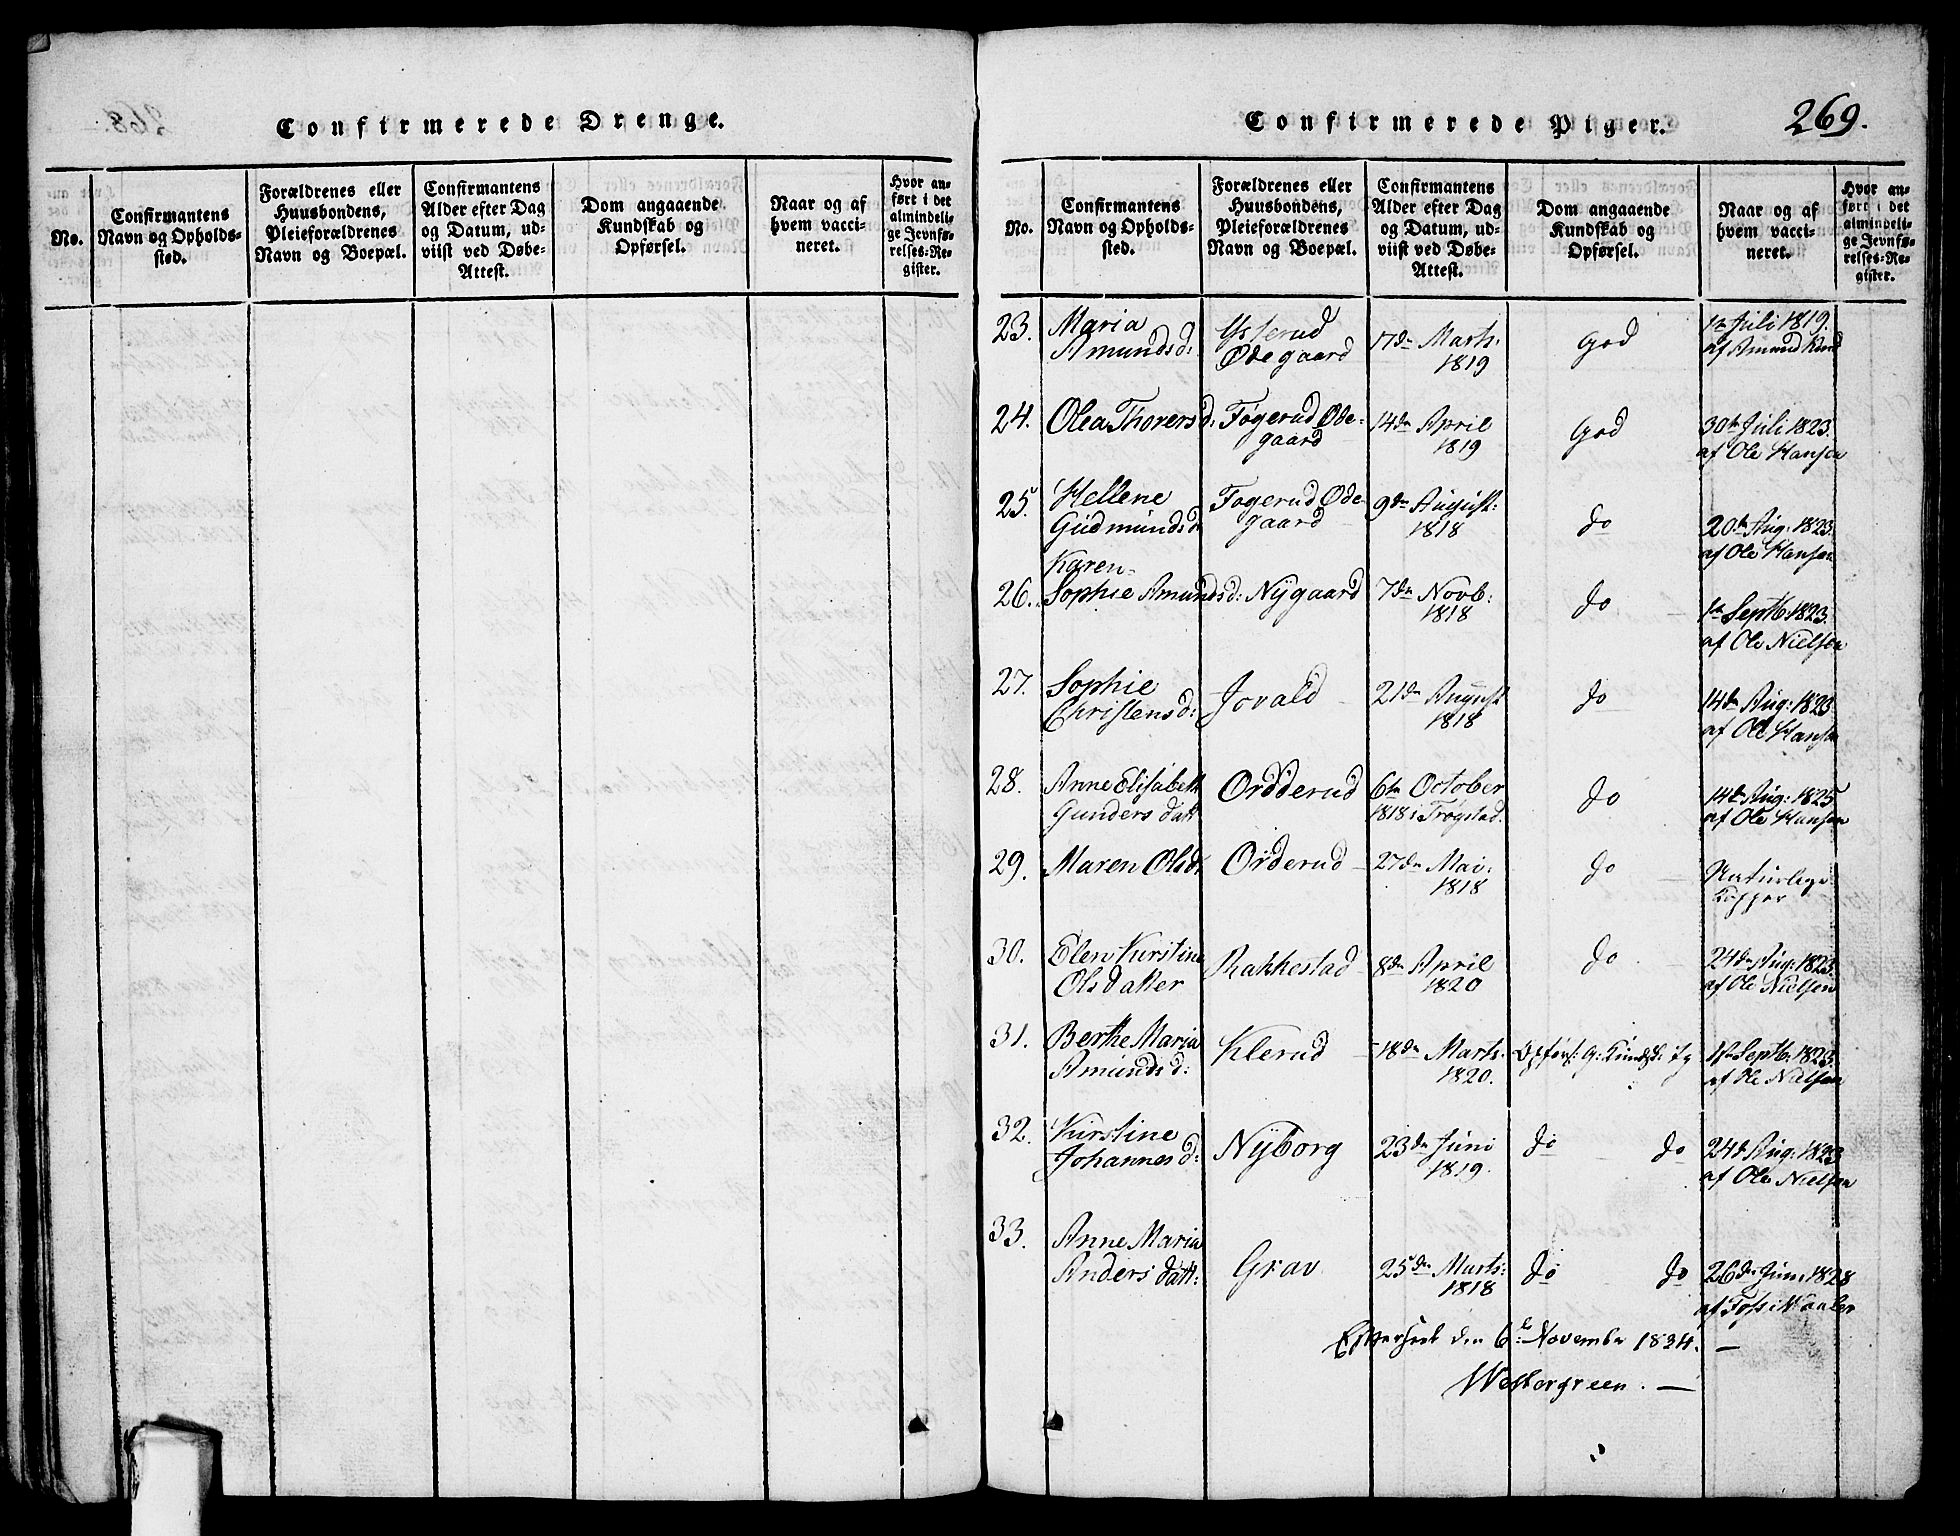 Confirmerede Drenge.
No.
Confirmantens
Navn og Opholds-
sted.
Forældrenes eller
Huusbondens,
Pleieforældrenes
Navn og Boepæl.
Confirmantens
Alder efter Dag
og Datum, ud-
viist ved Døbe-
Attest.
Dom angaaende
Kundskab og
Opførsel.
Naar og af
hvem vacci-
neret.
Hvor an-
ført i det
almindeli-
ge Jevnfø-
relses-Re-
gister.
Confirmerede Piger.
269.
No.
Confirmantens
Navn og Opholds-
sted.
Forældrenes eller
Huusbondens,
Pleieforældrenes
Navn og Boepæl.
Confirmantens
Alder efter Dag
og Datum, ud-
viist ved Døbe-
Attest.
Dom angaaende
Kundskab og
Opførsel.
Naar og af
hvem vacci-
neret.
Hvor an-
ført i det
almindeli-
ge Jevnfø-
relses-Re-
gister.
23. Maria Ysterud 17de Marts: God Juli 1819.
Amundsd: Ødegaard 1819 af Amund
24. Olea Thoversd: Føgerud Øde- 14de April God 30te Juli 1823.
gaard 1819 af Ole Hansen
25. Hellene Føgerud Øde- 9de August: do 20de Aug: 1823.
Gudmundsd: gaard 1818 af Ole Hansen
Karen-
26. Sophie Amundsd: Nygaard 7de Novb: do 1te Septb: 1823.
1818 af Ole Nielsen
27. Sophie Jovald 21de August do 14de Aug: 1823
Christensd: 1818 af Ole Hansen
28. Anne Elisabeth Ordderud 6te October do 14de Aug: 1825
Gunders datt 1818 i Trøgstad. af Ole Hansen
29. Maren Olsdr Orderud 27de Mai: do Naturlige
1818 Kopper
30. Elen Kirstine Rakkestad 8de April do 24de Aug: 1823.
Olsdatter 1820 af Ole Nielsen
31. Berthe Maria Klerud 18de Marts. Opførs: G: Kundsk: Tg 1te Septb: 1823.
Amundsd: 1820. af Ole Nielsen
32. Kirstine Nyborg 23de Juni do do 24de Aug: 1823
Johannesd: 1819. af Ole Nielsen
33. Anne Maria Grav 25de Marts: do do 26de Juni 1828
Anders datt: 1818 af Foss i Vaaler
Efterseet den 6te November 1834.
Westergreen.